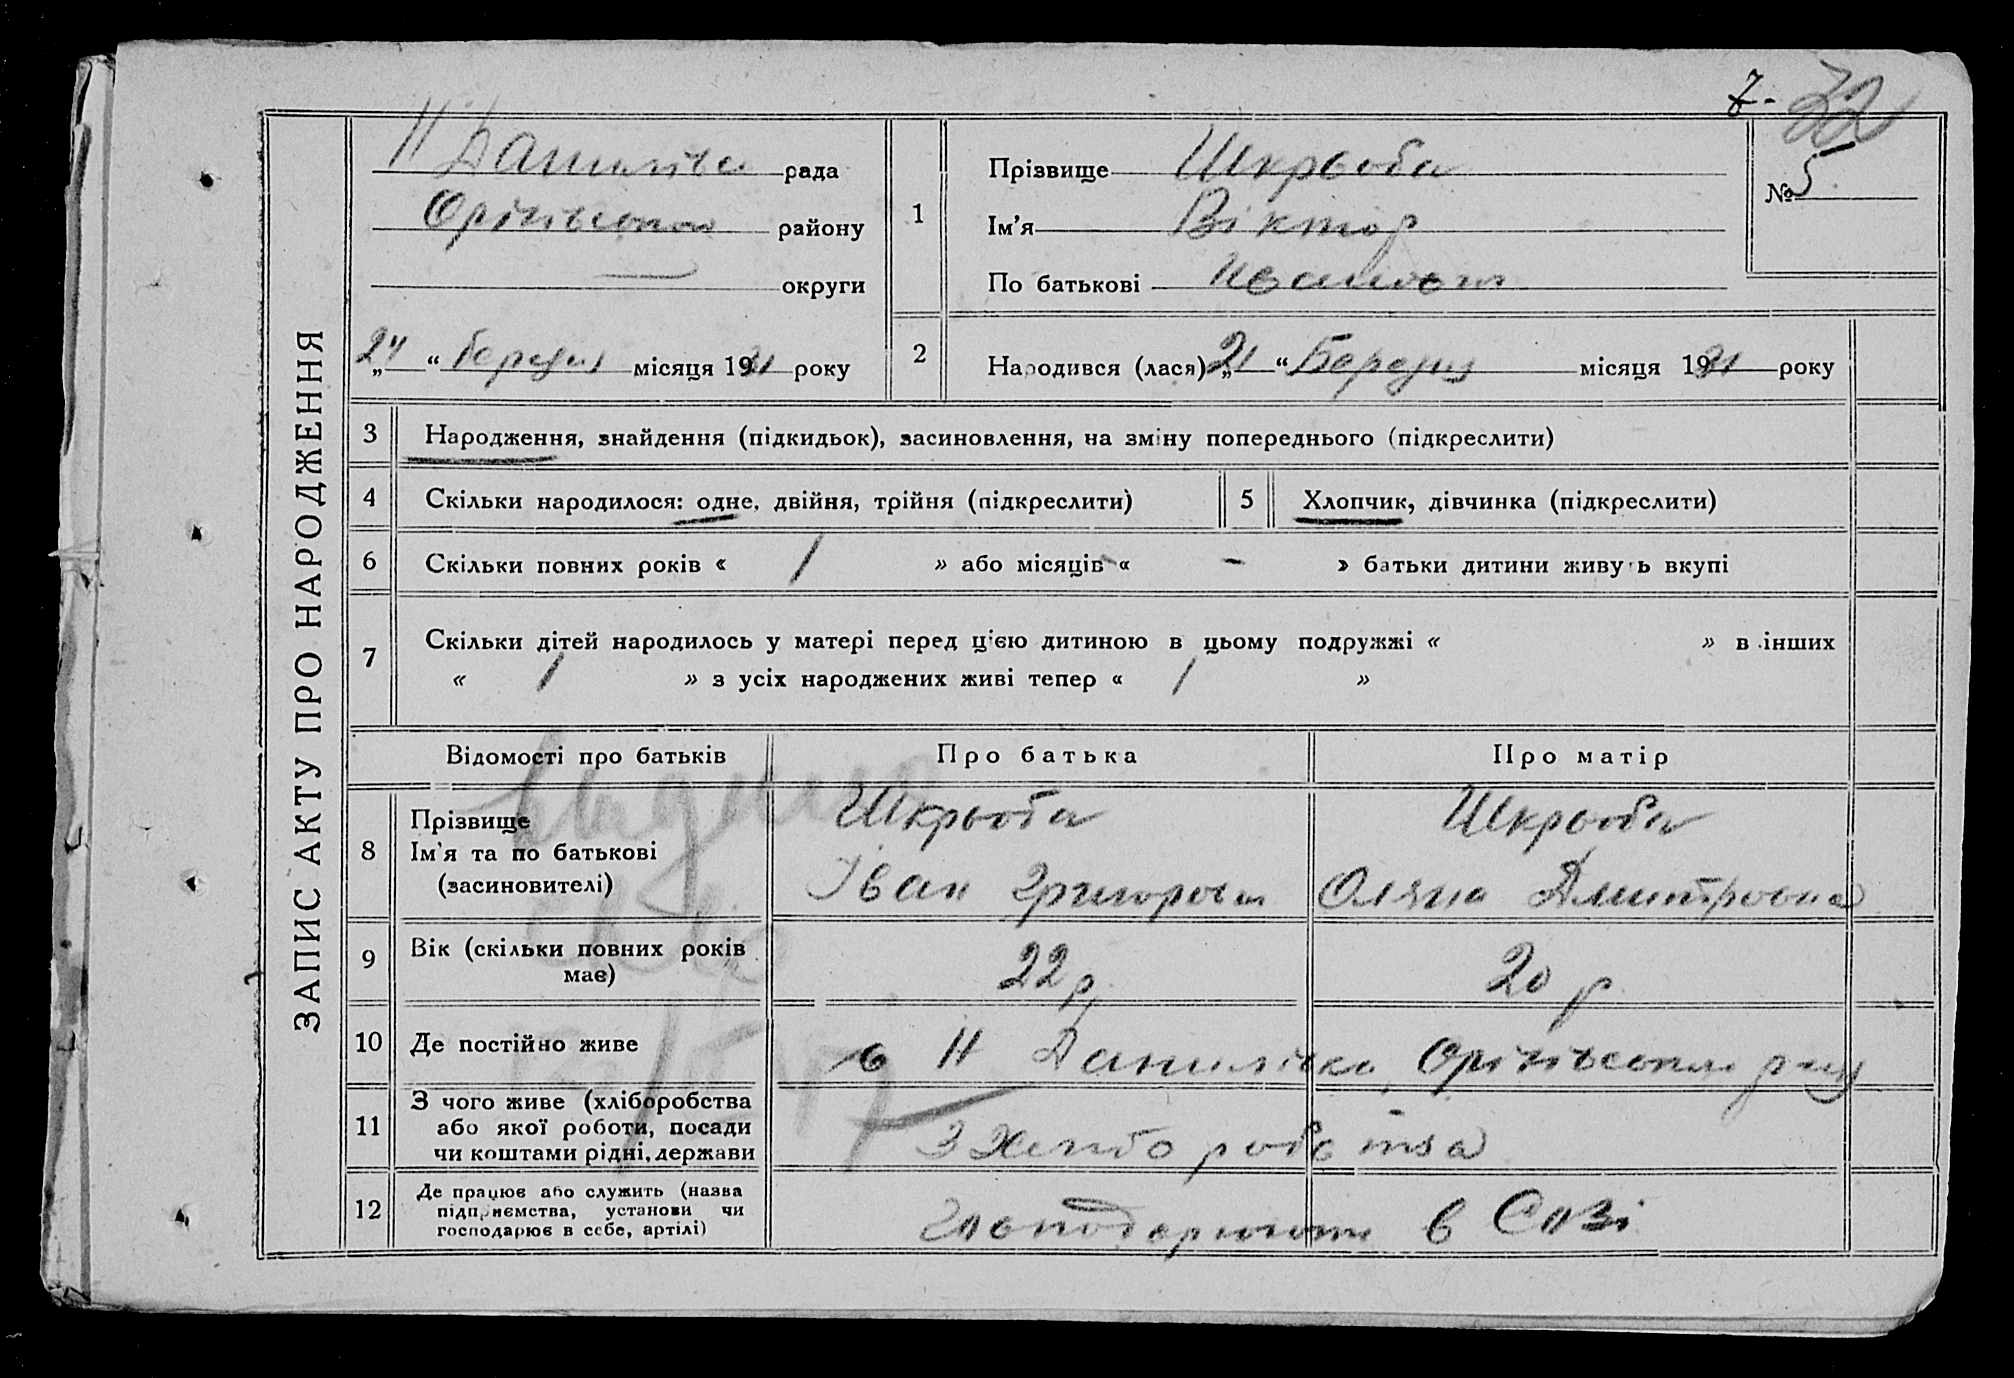 7-
32
ЗАПИС АКТУ ПРО НАРОДЖЕННЯ
Н Данилівсь рада
Орінінської району
— округи
„24“ березня місяця 1931 року
1
Прізвище Шкрьоба
Ім'я Віктор
По батькові Иванович
№ 5
2
Народився (лася) „21“ Березня місяця 1931 року
3 Народження, знайдення (підкидьок), засиновлення, на зміну попереднього (підкреслити)
4 Скільки народилося: одне, двійня, трійня (підкреслити)
5 Хлопчик, дівчинка (підкреслити)
6 Скільки повних років « 1 » або місяців « - » батьки дитини живуть вкупі
7 Скільки дітей народилось у матері перед цією дитиною в цьому подружжі « » в інших
« 1 » з усіх народжених живі тепер « 1 »
Відомості про батьків Про батька Про матір
8 Прізвище
Ім'я та по батькові
(засиновителі)
Шкрьоба
Іван Григорович
Шкрьоба
Оляна Дмитровна
9 Вік (скільки повних років
має)
22 р.
20 р
10 Де постійно живе
в Н Данилівка, Орінінського рну
11 З чого живе (хліборобства
або якої роботи, посади
чи коштами рідні, держави
З Хлібо робства
12 Де працює або служить (назва
підприємства, установи чи
господарює в себе, артілі)
господарюють в Созі